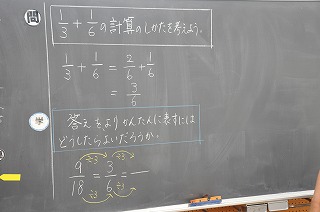 問
1/3 + 1/6 の計算のしかたを考えよう。
1/3 + 1/6 = 2/6 + 1/6
= 3/6
学
答えをよりかんたんに表すには
どうしたらよいだろうか。
÷3 ÷3
9/18 = 3/6 = —
÷3 ÷3